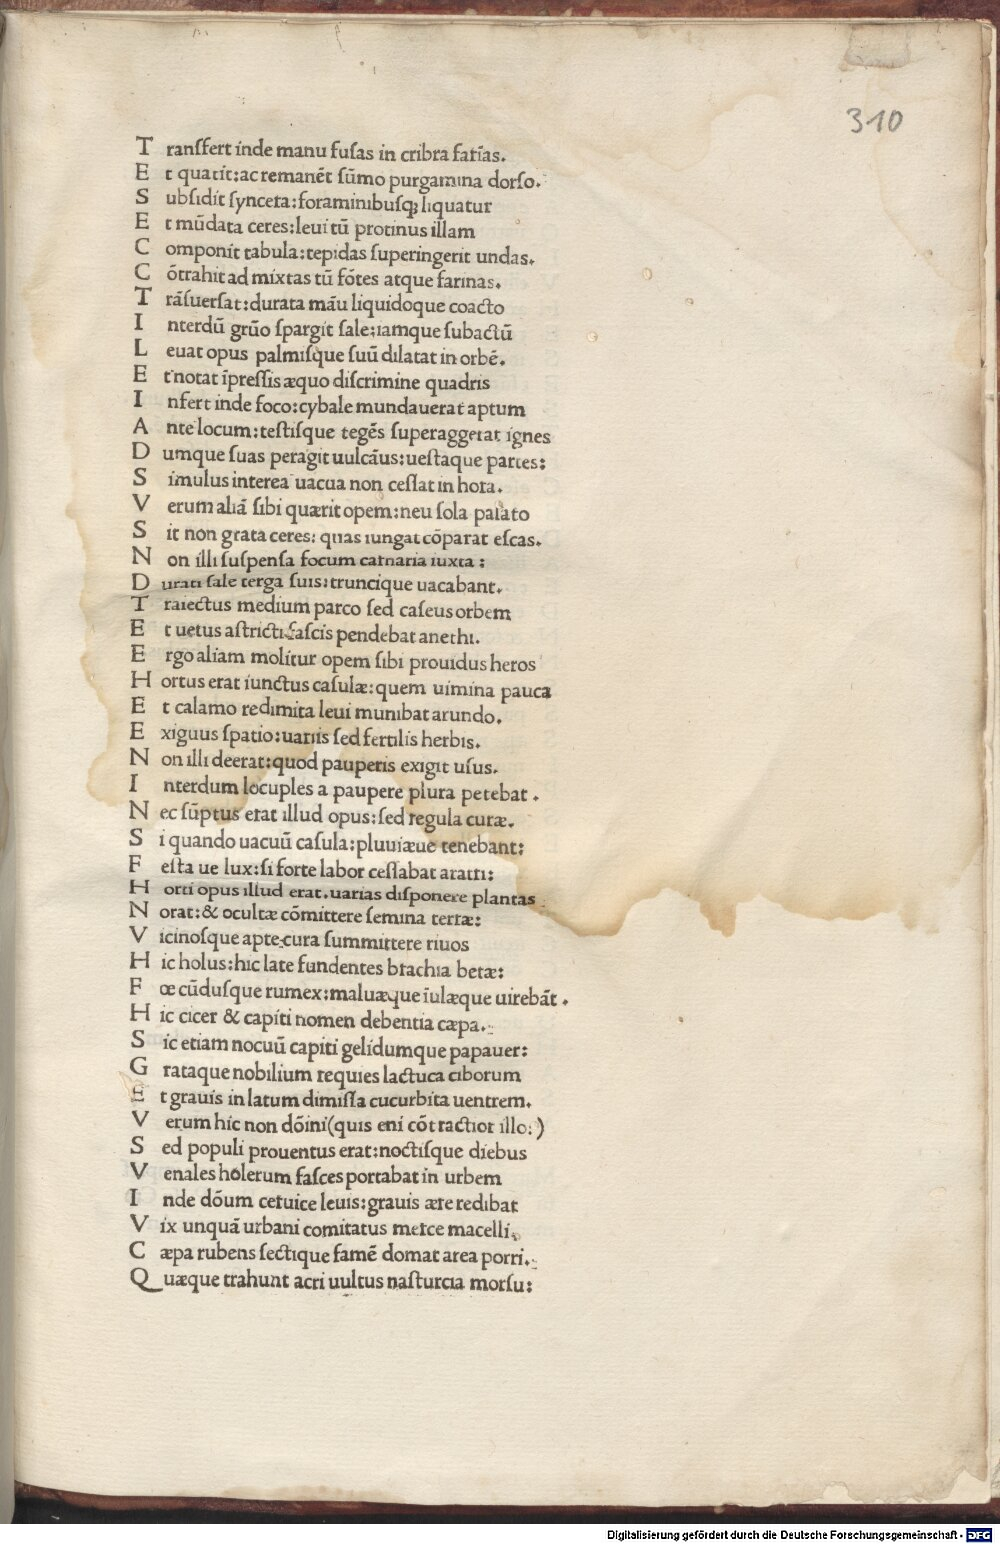 310
T ranſfert inde manu fuſas in cribra fariãs.
E t quatit: ac remanẽt ſũmo purgamina dorſo.
S ubſidit ſyncera: foraminibuſqꝫ liquatur
E t mũdata ceres: leui tũ protinus illam
C omponit tabula: tepidas ſuperingerit undas.
C õtrahit ad mixtas tũ fõtes atque farinas.
T rãſuerſat: durata mãu liquidoque coacto
I nterdũ grũo ſpargit ſale: iamque ſubactũ
L euat opus palmiſque ſuũ dilatat in orbẽ.
E t notat ĩpreſſis æquo diſcrimine quadris
I nfert inde foco: cybale mundauerat aptum
A nte locum: teſtiſque tegẽs ſuperaggerat ignes
D umque ſuas peragit uulcãus: ueſtaque partes:
S imulus interea uacua non ceſſat in hora.
V erum aliã ſibi quærit opem: neu ſola palato
S it non grata ceres: quas iungat cõparat eſcas.
N on illi ſuspenſa focum carnaria iuxta:
D urati ſale terga ſuis: truncique uacabant.
T raiectus medium parco ſed caſeus orbem
E t uetus aſtricti faſcis pendebat anethi.
E rgo aliam molitur opem ſibi prouidus heros
H ortus erat iunctus caſulæ: quem uimina pauca
E t calamo redimita leui munibat arundo.
E xiguus ſpatio: uariis ſed fertilis herbis.
N on illi deerat: quod pauperis exigit uſus.
I nterdum locuples a paupere plura petebat.
N ec ſũptus erat illud opus: ſed regula curæ.
S i quando uacuũ caſula: pluuiæue tenebant:
F eſta ue lux: ſi forte labor ceſſabat aratri:
H orti opus illud erat. uarias diſponere plantas
N orat: & ocultæ cõmittere ſemina terræ:
V icinoſque apte cura ſummittere riuos
H ic holus: hic late fundentes brachia betæ:
F œcũduſque rumex: maluæque ĩulæque uirebãt.
H ic cicer & capiti nomen debentia cæpa.
S ic etiam nocuũ capiti gelidumque papauer:
G rataque nobilium requies lactuca ciborum
E t grauis in latum dimiſſa cucurbita uentrem.
V erum hic non dõini (quis eni cõtractior illo.)
S ed populi prouentus erat: noctiſque diebus
V enales holerum faſces portabat in urbem
I nde dõum ceruice leuis: grauis ære redibat
V ix unquã urbani comitatus merce macelli.
C æpa rubens ſectique famẽ domat area porri.
Q uæque trahunt acri uultus naſturcia morſu:
Digitalisierung gefördert durch die Deutsche Forschungsgemeinschaft - DFG